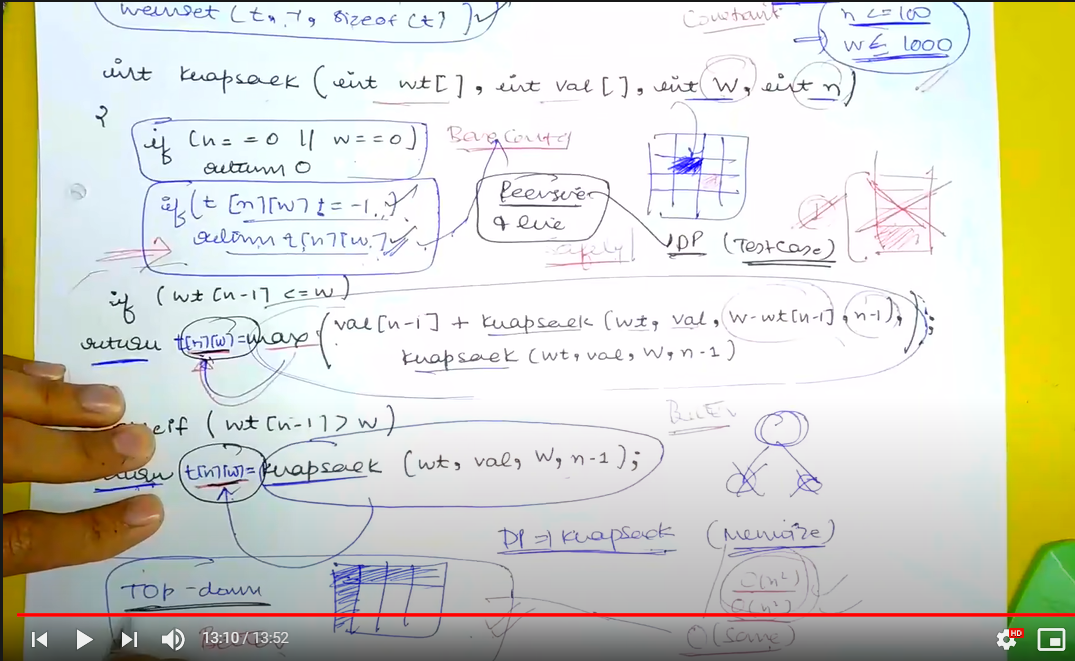 memset (t, -1, sizeof (t))
Constraint
n <= 100
W <= 1000
int knapsack (int wt[], int val[], int W, int n)
{
if (n == 0 || w == 0)
return 0
if (t [n][w] != -1)
return t[n][w]
Recursive
DP (Testcase)
if (wt [n-1] <= w)
return t[n][w] = max (val[n-1] + knapsack (wt, val, W-wt[n-1], n-1),
knapsack (wt, val, W, n-1));
elseif (wt [n-1] > w)
return t[n][w] = knapsack (wt, val, W, n-1);
DP => Knapsack (Memoize)
TOP-down
O(n²)
O(n²)
O(Same)
13:10 / 13:52
HD